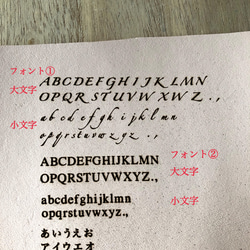 フォント①
大文字
ABCDEFGHIJKLMN
OPQRSTUVWXYZ.,
小文字
abcdefghijklmn
opqrstuvwxyz.,
フォント②
ABCDEFGHIJKLMN
大文字
OPQRSTUVWXYZ.,
abcdefghijklmn
小文字
opqrstuvwxyz.,
あいうえお
アイウエオ